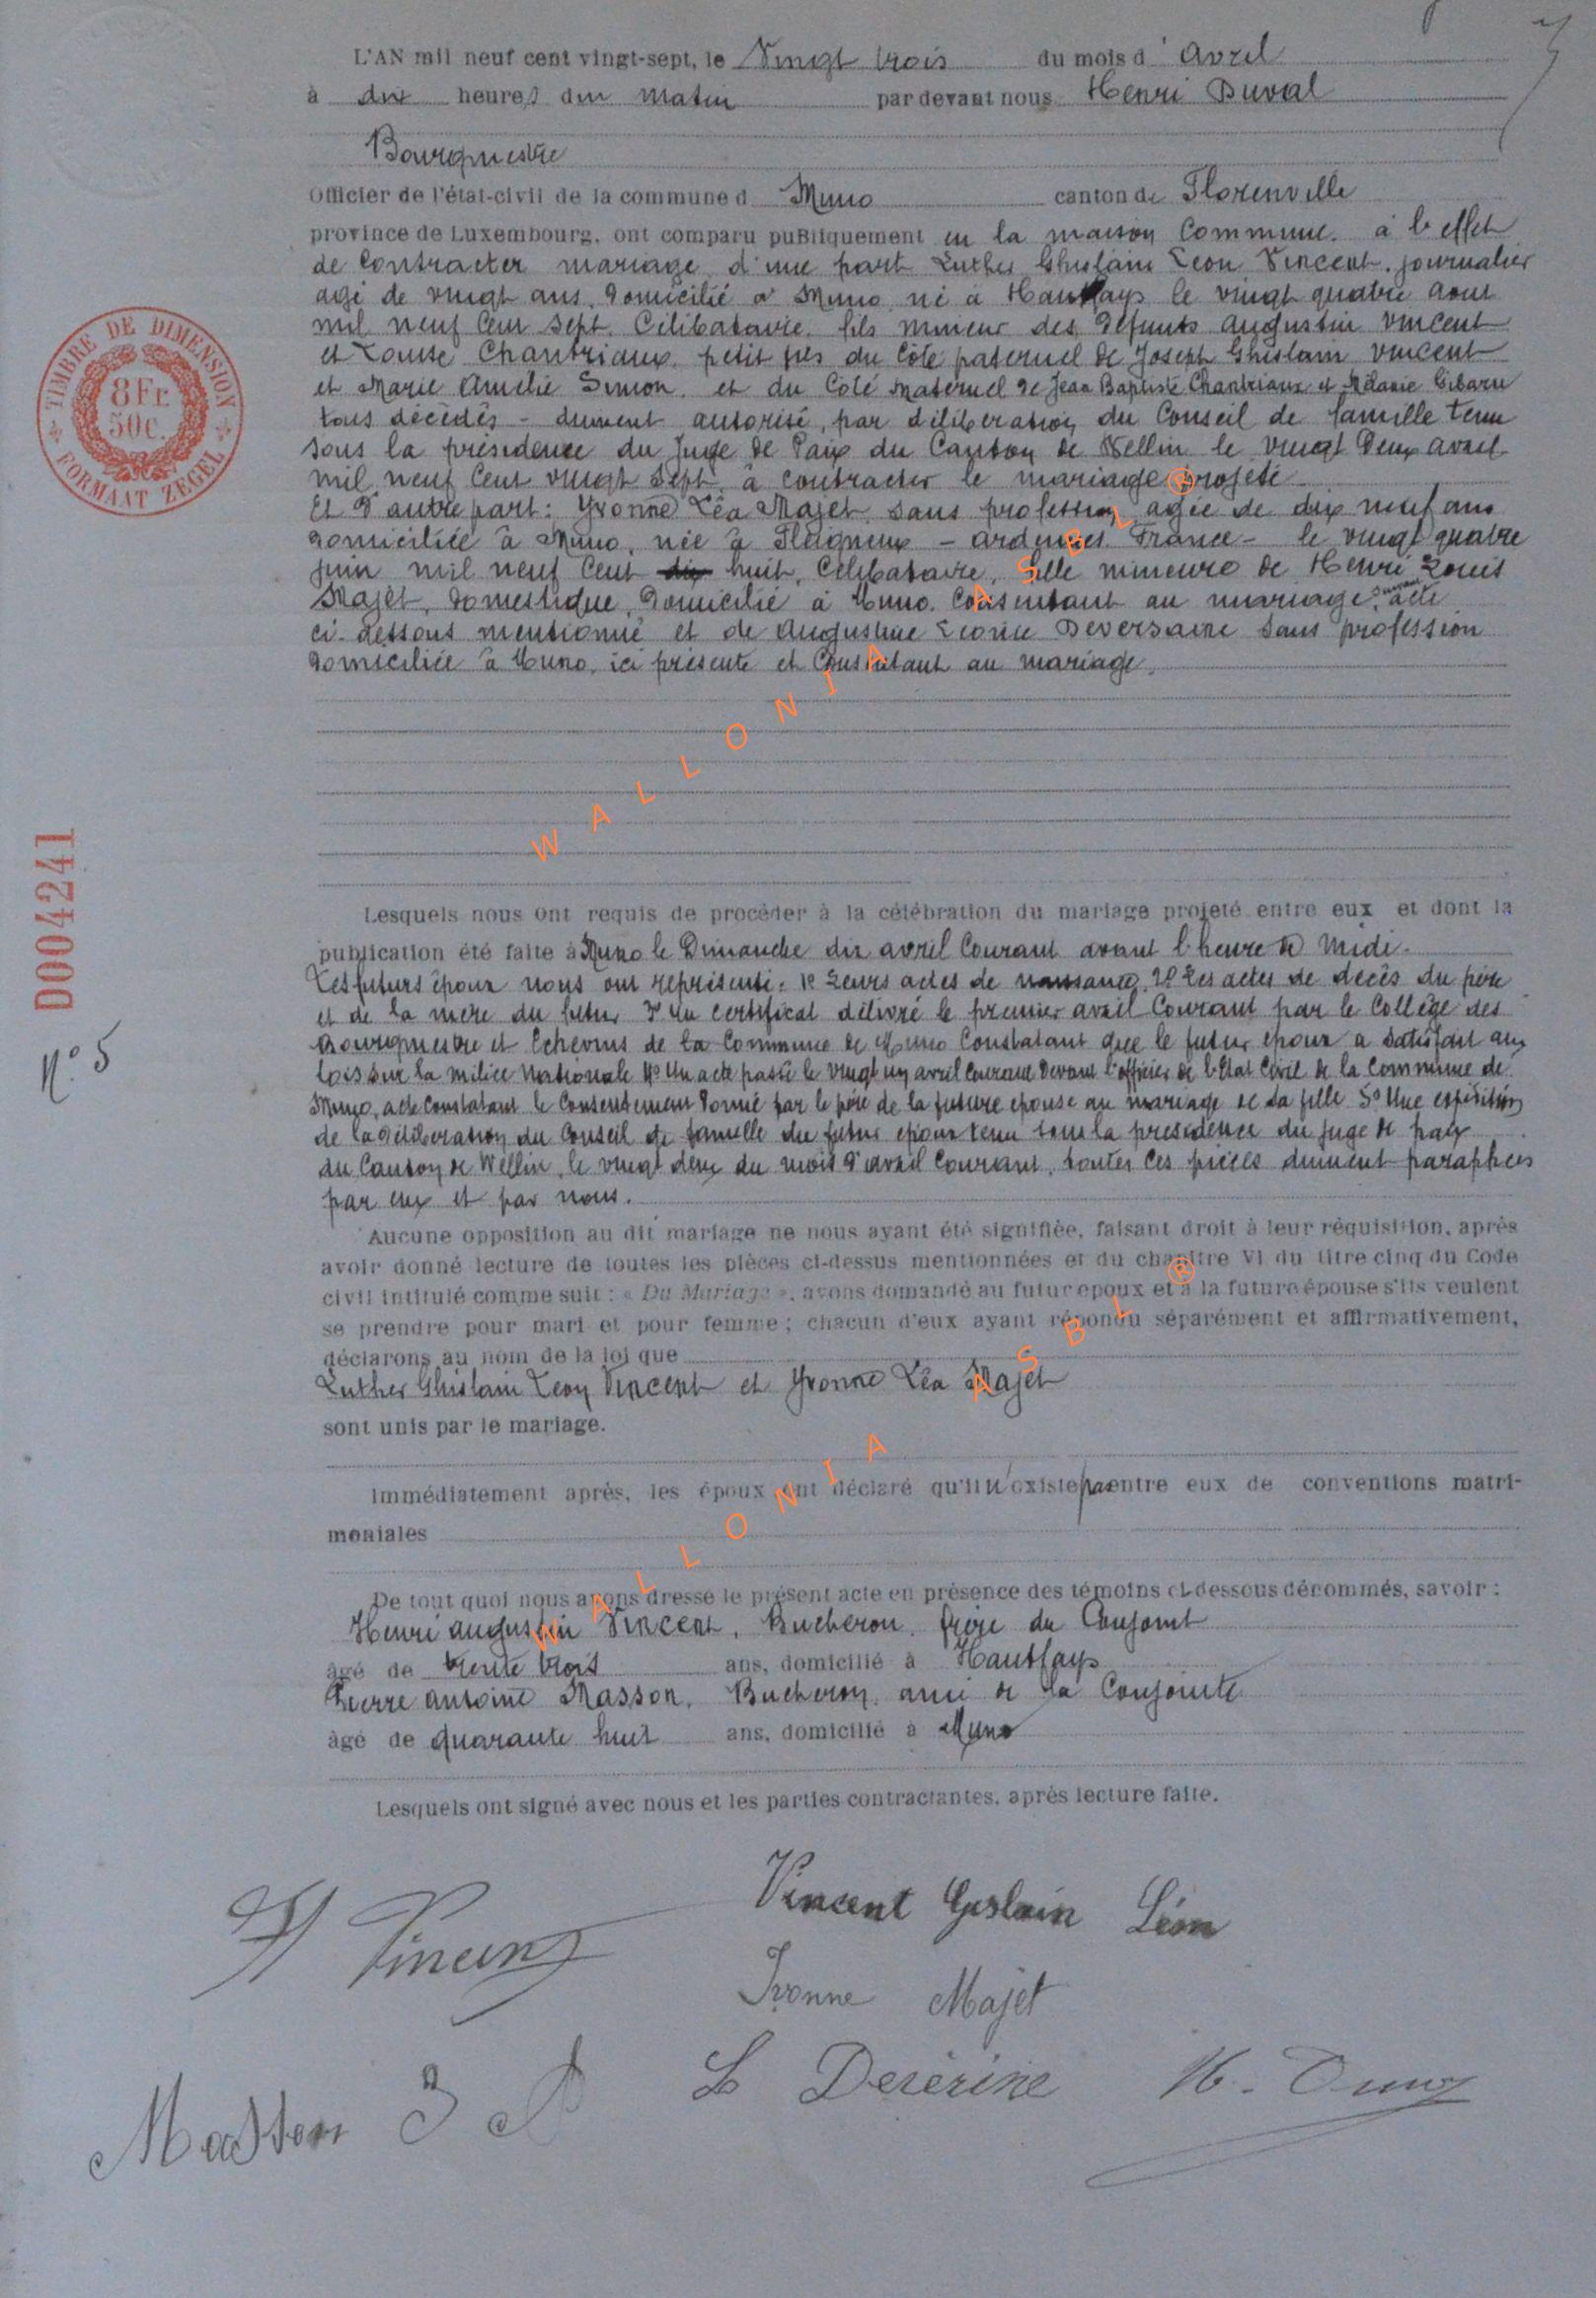 L'AN mil neuf cent vingt-sept, le Vingt trois du mois d' Avril
à dix heures du matin par devant nous Henri Duval
Bourgmestre
Officier de l'état-civil de la commune d Muno canton de Florenville
province de Luxembourg, ont comparu publiquement en la maison Commune. à l'effet
de Contracter mariage d'une part Luther Ghislain Leon Vincent. journalier
agé de vingt ans. Domicilié à Muno né à Hautfays le vingt quatre aout
mil neuf Cent Sept. Célibataire. fils mineur des Defunts Augustin Vincent
et Louise Chantriaux. petit fils du Coté paternel de Joseph Ghislain Vincent
et Marie Amélie Simon. et du Coté Maternel de Jean Baptiste Chantriaux et Mélanie
tous décédés - dument autorisé, par délibération du Conseil de famille tenu
sous la présidence du Juge de Paix du Canton de Wellin le vingt Deux avril
mil neuf Cent vingt Sept. à contracter le mariage projeté
Et D'autre part: Yvonne Léa Majet. sans profession agée de dix neuf ans
Domiciliée à Muno, née à Fleigneux - Ardennes France - le vingt quatre
juin mil neuf Cent dix huit, Célibataire, fille mineure de Henri Louis
Majet, Domestique, Domicilié à Muno. Consentant au mariage, suivant acte
ci-dessous mentionné et de Augustine Léonie Deversaine Sans profession
Domiciliée à Muno, ici présente et Consentant au mariage.
Lesquels nous ont requis de procéder à la célébration du mariage projeté entre eux et dont la
publication été faite à Muno le Dimanche dix avril Courant avant l'heure de Midi.
Les futurs époux nous ont représenté: 1° Leurs actes de naissance. 2° Les actes de décès du père
et de la mère du futur 3° Un certificat délivré le premier avril Courant par le Collège des
Bourgmestre et Echevins de la Commune de Muno Constatant que le futur époux a satisfait aux
lois sur la milice Nationale 4° Un acte passé le vingt un avril Courant Devant l'officier de l'Etat Civil de la Commune de
Muno, acte Constatant le Consentement Donné par le père de la future épouse au mariage de sa fille 5° Une expédition
de la Délibération du Conseil de famille du futur époux tenu sous la présidence du Juge de paix
du Canton de Wellin, le vingt deux du mois d'avril Courant, toutes Ces pièces dument paraphées
par eux et par nous.
Aucune opposition au dit mariage ne nous ayant été signifiée, faisant droit à leur réquisition, après
avoir donné lecture de toutes les pièces ci-dessus mentionnées et du chapitre VI du titre cinq du Code
civil intitulé comme suit : « Du Mariage », avons demandé au futur époux et à la future épouse s'ils veulent
se prendre pour mari et pour femme ; chacun d'eux ayant répondu séparément et affirmativement,
déclarons au nom de la loi que
Luther Ghislain Leon Vincent et Yvonne Léa Majet
sont unis par le mariage.
Immédiatement après, les époux ont déclaré qu'il n'existe pas entre eux de conventions matri-
moniales
De tout quoi nous avons dressé le présent acte en présence des témoins ci-dessous dénommés, savoir :
Henri Augustin Vincent, Bucheron, frère du Conjoint
âgé de trente trois ans, domicilié à Hautfays
Pierre Antoine Masson, Bucheron, ami de la Conjointe
âgé de quarante huit ans, domicilié à Muno
Lesquels ont signé avec nous et les parties contractantes, après lecture faite.
Vincent Geslain Léon
H Vincent
Ivonne Majet
Masson
TIMBRE DE DIMENSION
8 Fr.
50c.
FORMAAT ZEGEL
D004241
N° 5
WALLONIA ASBL ®
WALLONIA ASBL ®